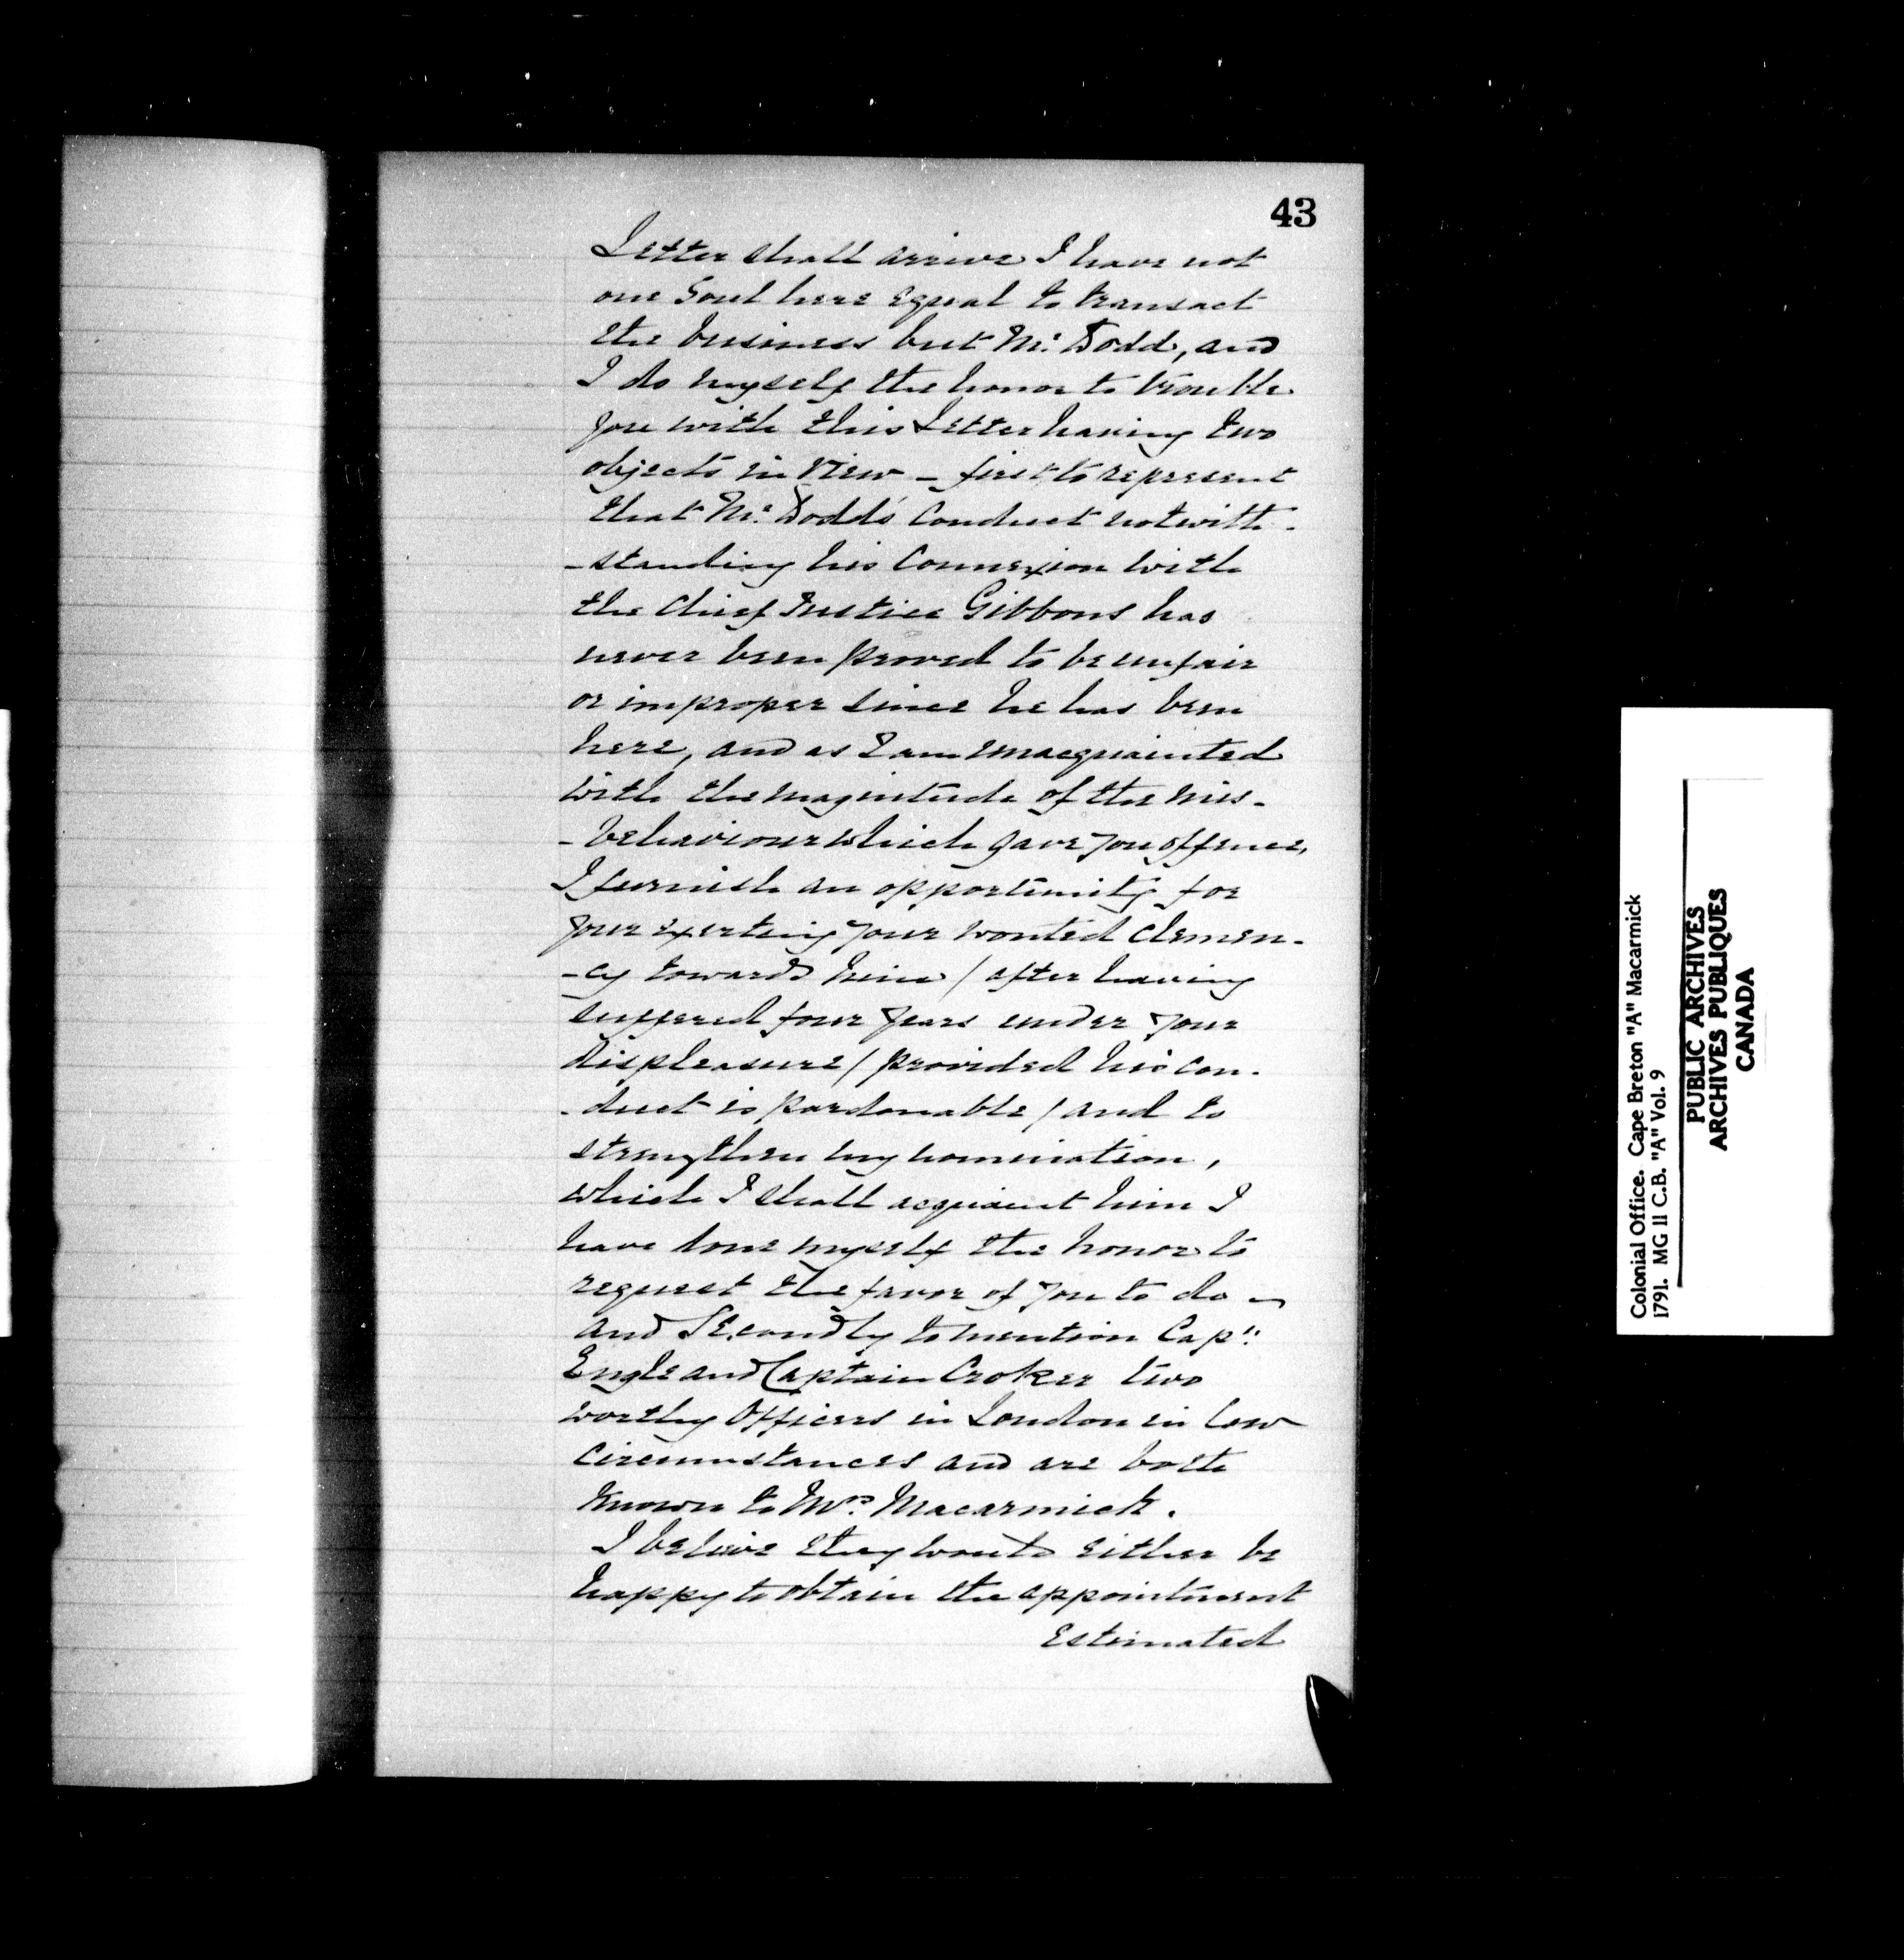 43
Letter shall arrive I have not
one Soul here equal to transact
the business but Mr. Dodd, and
I do myself the honor to trouble
you with this Letter having two
objects in view - first to represent
that Mr. Dodd's Conduct notwith-
-standing his Connexion with
the Chief Justice Gibbons has
never been proved to be unfair
or improper since he has been
here, and as I am unacquainted
with the magnitude of the mis-
-behaviour which gave you offence,
I furnish an opportunity for
your exerting your wonted clemen-
-cy towards him / after having
suffered four years under your
displeasure / provided his con-
-duct is pardonable / and to
strengthen my nomination,
which I shall acquaint him I
have done myself the honor to
request the favor of you to do -
and Secondly to mention Capn
Engle and Captain Croker two
worthy Officers in London in low
Circumstances and are both
known to Mrs. Macarmick.
I believe they would either be
happy to obtain the appointment
Estimated
Colonial Office. Cape Breton "A" Macarmick
1791. MG 11 C.B. "A" Vol. 9
PUBLIC ARCHIVES
ARCHIVES PUBLIQUES
CANADA